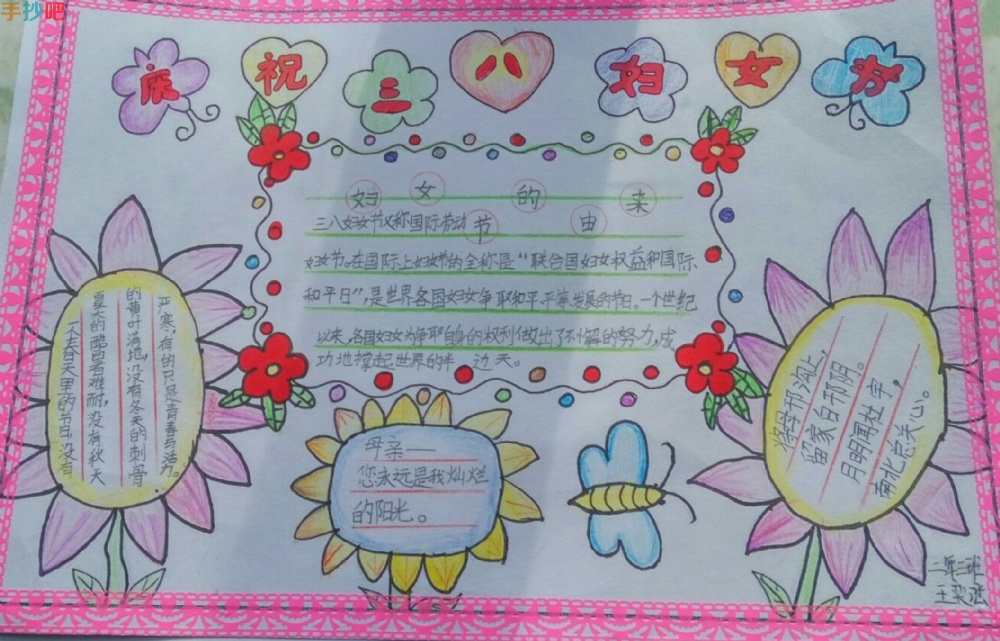 手抄吧
庆祝三八妇女节
妇女节的由来
三八妇女节又称国际劳动
妇女节。在国际上妇女节的全称是“联合国妇女权益和国际
和平日”,是世界各国妇女争取和平、平等、发展的节日。一个世纪
以来,各国妇女为争取自身的权利做出了不懈的努力,成
功地撑起世界的半边天。
一个春天里的节日,没有
夏天的酷暑难耐,没有秋天
的黄叶满地,没有冬天的刺骨
严寒,有的只是青春与活力。
母亲——
您永远是我灿烂
的阳光。
将母邗沟上,
留家白邗阴。
月明闻杜宇,
南北总关心。
二年三班
王奕